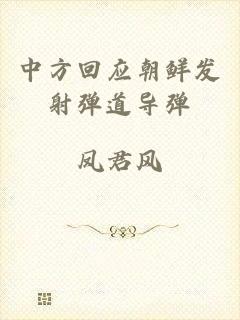 中方回应朝鲜发
射弹道导弹
凤君风